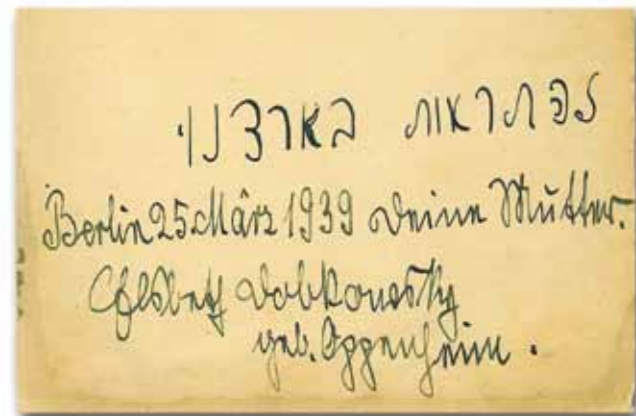 להתראות בארצנו.
Berlin 25 März 1939 Deine Mutter.
Elsbeth Dobkowsky
geb. Oppenheim.